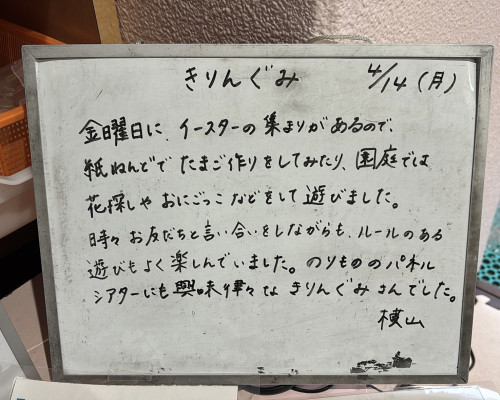 きりんぐみ 4/14(月)
金曜日に、イースターの集まりがあるので、
紙ねんどで たまご作りをしてみたり、園庭では
花探しや おにごっこ などをして 遊びました。
時々 お友だちと言い合いをしながらも、ルールのある
遊びもよく楽しんでいました。のりもののパネル
シアターにも 興味津々な きりんぐみさんでした。
横山